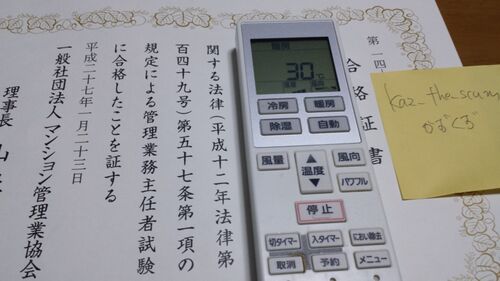 第一四
合格証書
関する法律(平成十二年法律第
百四十九号)第五十七条第一項の
規定による管理業務主任者試験
に合格したことを証する
平成二十七年一月二十三日
一般社団法人 マンション管理業協会
理事長 山
暖房
30℃
風量
風向
冷房
暖房
除湿
自動
風量
温度
風向
パワフル
停止
切タイマー
入タイマー
におい除去
取消
予約
メニュー
kaz_the_scum
かず"くず"